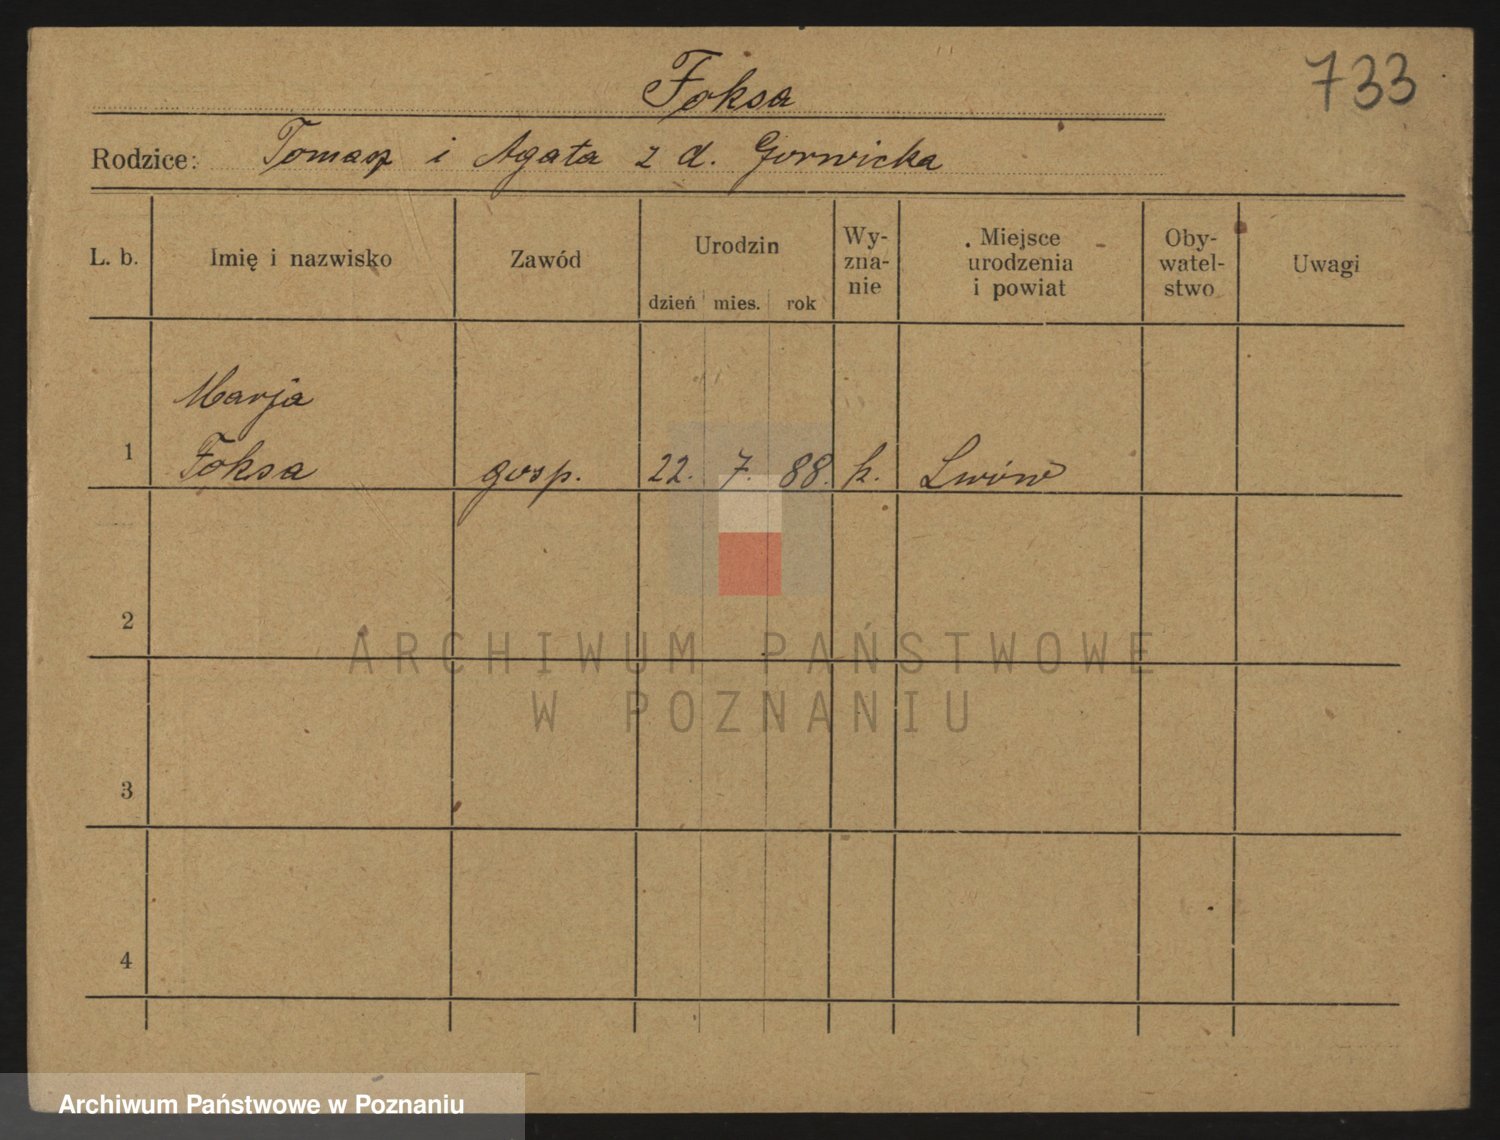 Foksa
733
Rodzice: Tomasz i Agata z d. Gorwicka
L. b.
Imię i nazwisko
Zawód
Urodzin
dzień mies. rok
Wy-
zna-
nie
Miejsce
urodzenia
i powiat
Oby-
watel-
stwo
Uwagi
Marja
1 Foksa gosp. 22. 7. 88. k. Lwów
2
ARCHIWUM PAŃSTWOWE
W POZNANIU
3
4
Archiwum Państwowe w Poznaniu